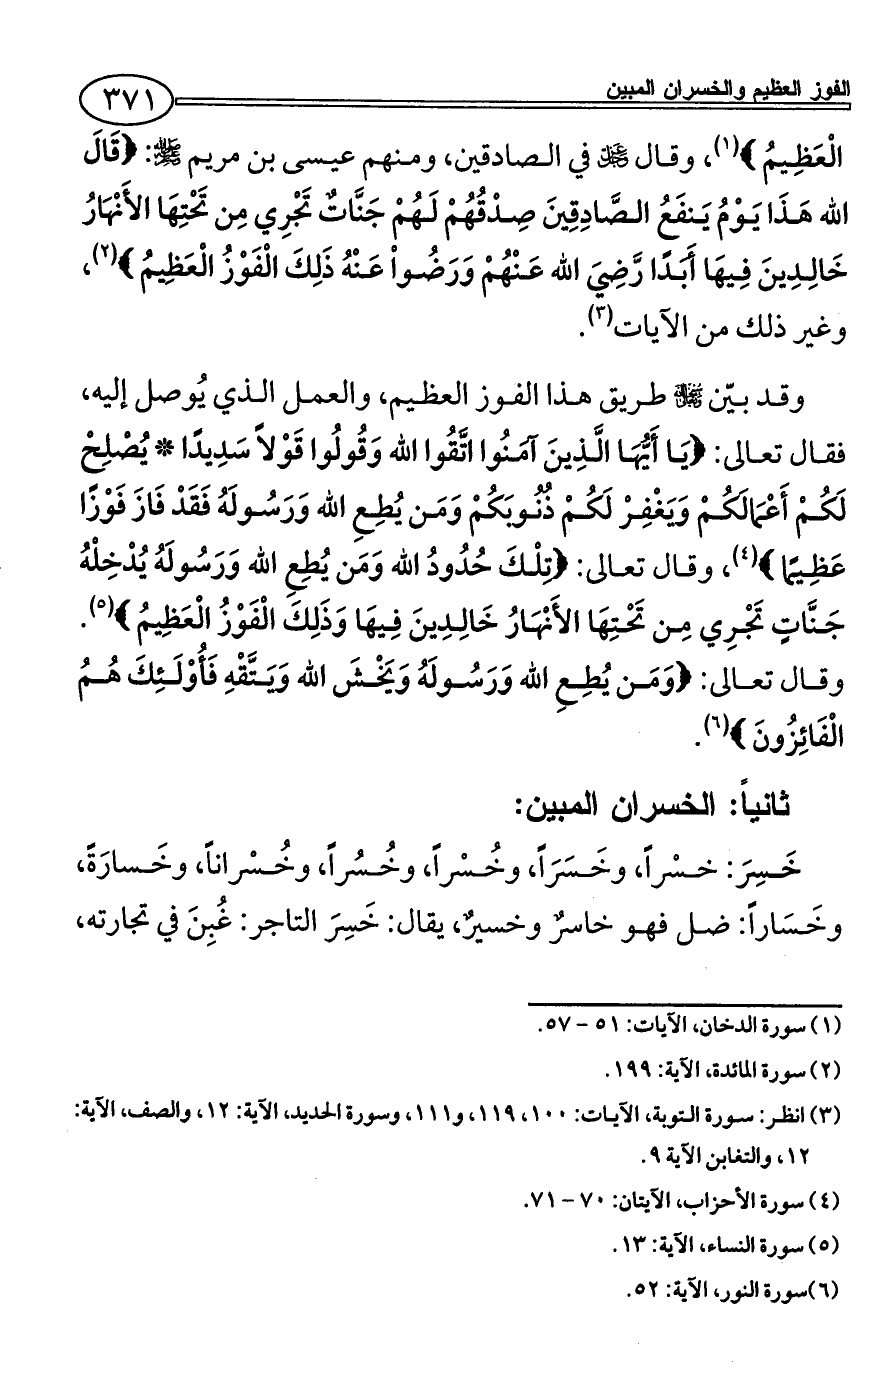 الفوز العظيم والخسران المبين
٣٧١
الْعَظِيمُ ﴾(١)، وقال ﷻ في الصادقين، ومنهم عيسى بن مريم ﷺ: ﴿قَالَ
الله هَذَا يَوْمُ يَنفَعُ الصَّادِقِينَ صِدْقُهُمْ لَهُمْ جَنَّاتٌ تَجْرِي مِن تَحْتِهَا الأَنْهَارُ
خَالِدِينَ فِيهَا أَبَدًا رَّضِيَ الله عَنْهُمْ وَرَضُواْ عَنْهُ ذَلِكَ الْفَوْزُ الْعَظِيمُ ﴾(٢)،
وغير ذلك من الآيات(٣).
وقد بيّن ﷻ طريق هذا الفوز العظيم، والعمل الذي يُوصل إليه،
فقال تعالى: ﴿يَا أَيُّهَا الَّذِينَ آمَنُوا اتَّقُوا الله وَقُولُوا قَوْلاً سَدِيدًا * يُصْلِحْ
لَكُمْ أَعْمَالَكُمْ وَيَغْفِرْ لَكُمْ ذُنُوبَكُمْ وَمَن يُطِعِ الله وَرَسُولَهُ فَقَدْ فَازَ فَوْزًا
عَظِيمًا ﴾(٤)، وقال تعالى: ﴿تِلْكَ حُدُودُ الله وَمَن يُطِعِ الله وَرَسُولَهُ يُدْخِلْهُ
جَنَّاتٍ تَجْرِي مِن تَحْتِهَا الأَنْهَارُ خَالِدِينَ فِيهَا وَذَلِكَ الْفَوْزُ الْعَظِيمُ ﴾(٥).
وقال تعالى: ﴿وَمَن يُطِعِ الله وَرَسُولَهُ وَيَخْشَ الله وَيَتَّقْهِ فَأُوْلَئِكَ هُمُ
الْفَائِزُونَ ﴾(٦).
ثانياً: الخسران المبين:
خَسِرَ: خسْراً، وخَسَرَاً، وخُسْراً، وخُسُراً، وخُسْراناً، وخَسارَةً،
وخَسَاراً: ضل فهو خاسرٌ وخسيرٌ، يقال: خَسِرَ التاجر: غُبِنَ في تجارته،
(١) سورة الدخان، الآيات: ٥١ – ٥٧.
(٢) سورة المائدة، الآية: ١٩٩.
(٣) انظر: سورة التوبة، الآيات: ١٠٠، ١١٩، و١١١، وسورة الحديد، الآية: ١٢، والصف، الآية:
١٢، والتغابن الآية ٩.
(٤) سورة الأحزاب، الآيتان: ٧٠ – ٧١.
(٥) سورة النساء، الآية: ١٣.
(٦)سورة النور، الآية: ٥٢.